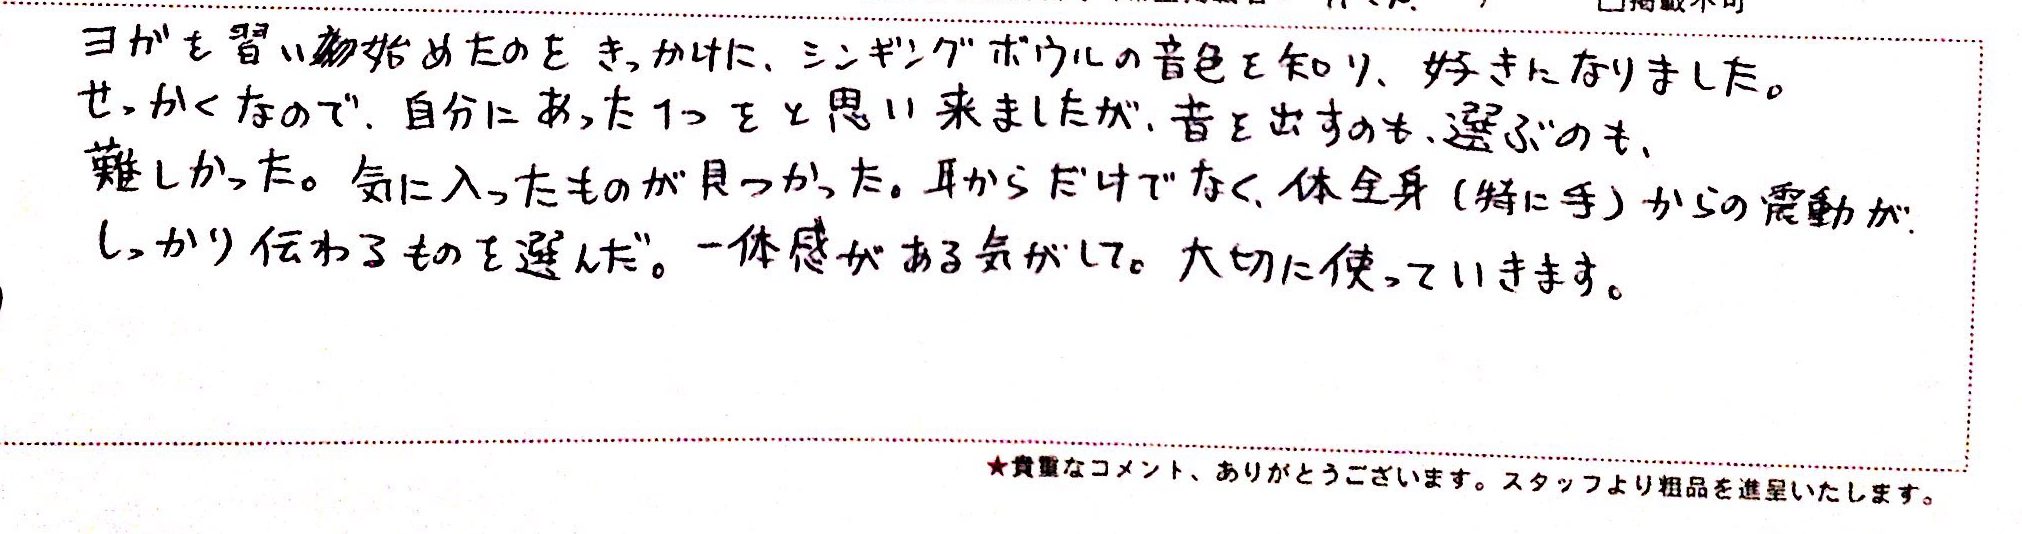 □掲載不可
ヨガを習い始めたのをきっかけに、シンギングボウルの音色を知り、好きになりました。
せっかくなので、自分にあった1つをと思い来ましたが、音を出すのも、選ぶのも、
難しかった。気に入ったものが見つかった。耳からだけでなく、体全身(特に手)からの震動が、
しっかり伝わるものを選んだ。一体感がある気がして。大切に使っていきます。
★貴重なコメント、ありがとうございます。スタッフより粗品を進呈いたします。